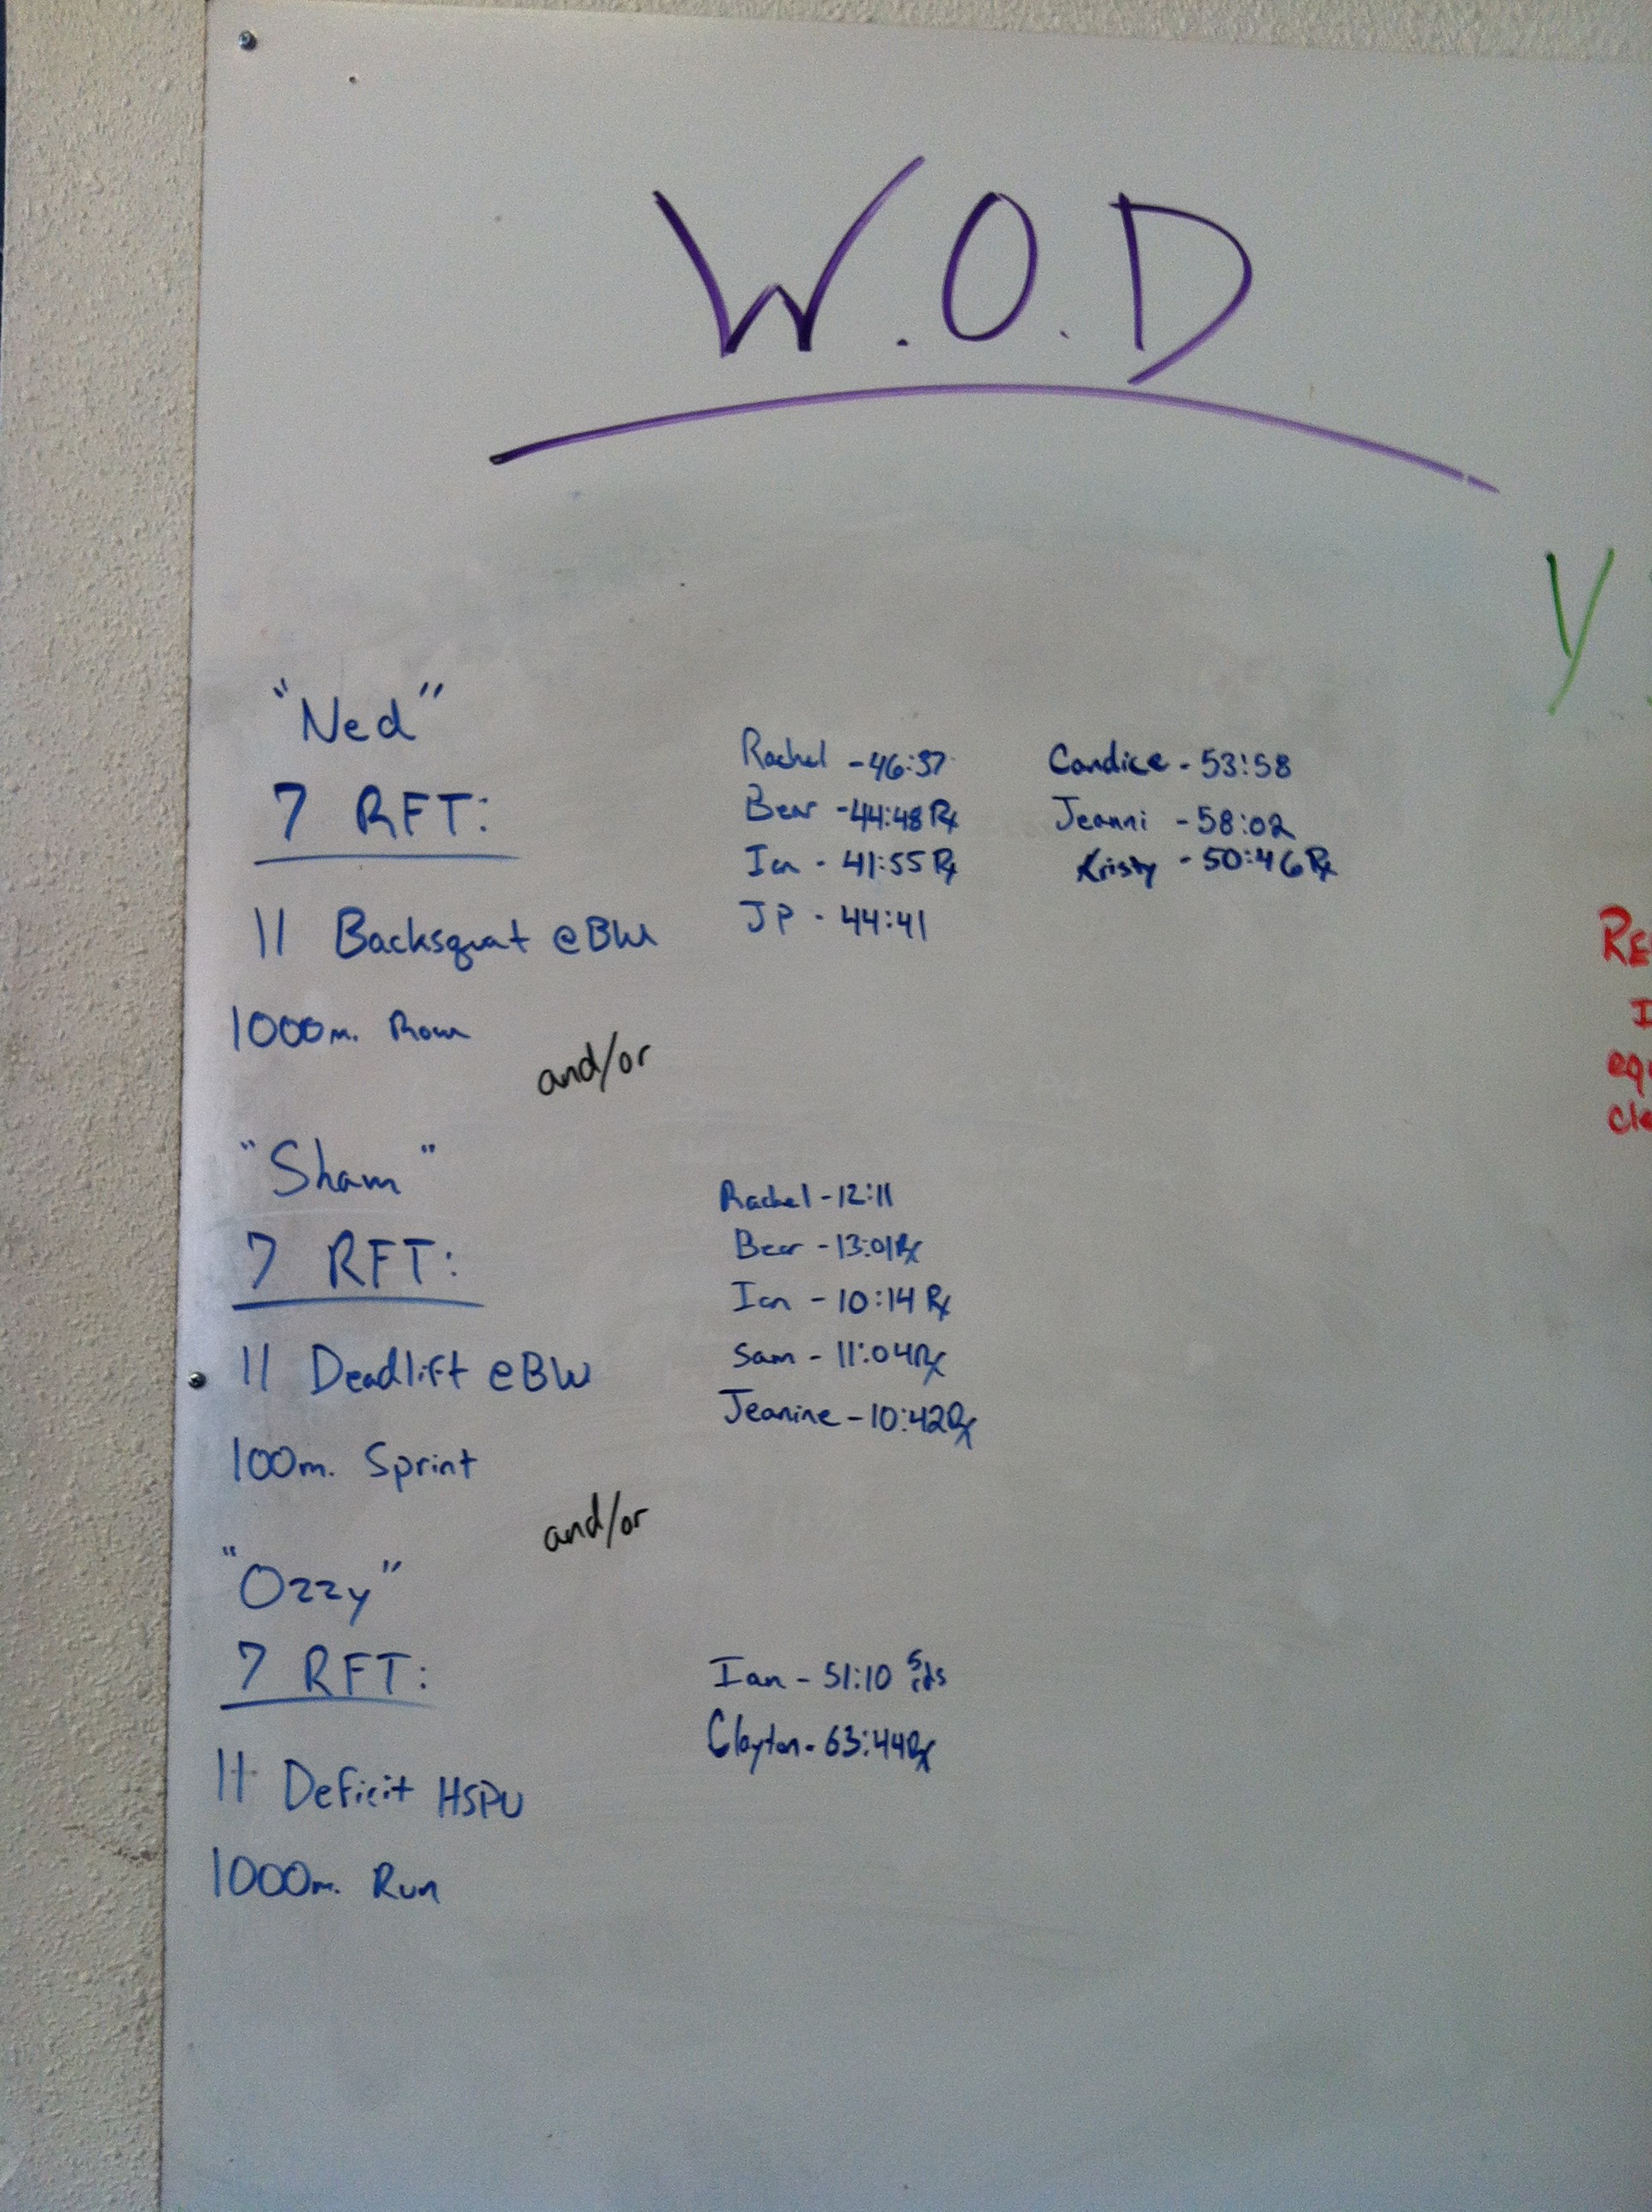 W.O.D
"Ned"
7 RFT:
11 Backsquat @BW
1000m. Row
Rachel - 46:37
Bear - 44:48 Rx
Ian - 41:55 Rx
JP - 44:41
Candice - 53:58
Jeanni - 58:02
Kristy - 50:46 Rx
and/or
"Sham"
7 RFT:
11 Deadlift @BW
100m. Sprint
Rachel - 12:11
Bear - 13:01 Rx
Ian - 10:14 Rx
Sam - 11:04 Rx
Jeanine - 10:42 Rx
and/or
"Ozzy"
7 RFT:
11 Deficit HSPU
1000m. Run
Ian - 51:10
Clayton - 63:44 Rx
Y
RE
I
equ
Cle